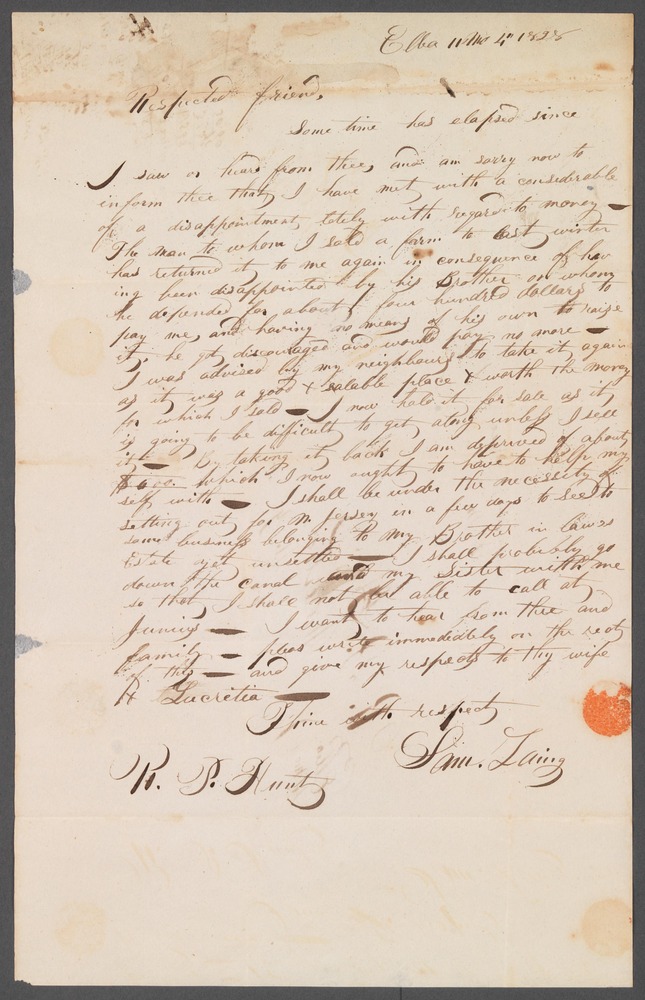 Elba 11 Mo 4th 1828
Respected friend,
Some time has elapsed since
I saw or heard from thee, and am sorry now to
inform thee that I have met with a considerable
of a disappointment, lately with regard to money —
The Man to whom I sold a farm to last winter
has returned it to me again in consequence of hav
ing been disappointed by his Brother on whom
he depended for about four hundred dollars to
pay me, and having no means of his own to raise
it, he got discouraged and would pay no more —
I was advised by my neighbours to take it again
as it was a good & salable place & worth the money
for which I sold — I now hold it for sale as it
is going to be difficult to get along unless I sell
it — By taking it back I am deprived of about
which I now ought to have to help my
self with — I shall be under the necessity of
setting out for N Jersey in a few days to See to
some business belonging to my Brother in Laws
Estate yet unsettled — I shall probably go
down the canal and my Sister with me
so that I shall not be able to call at
Junius — I want to hear from thee and
family — pleas write immediately on the rect
of this — and give my respects to thy wife
& Lucretia —
Thine with respect
Sam. Laing
R. P. Hunt